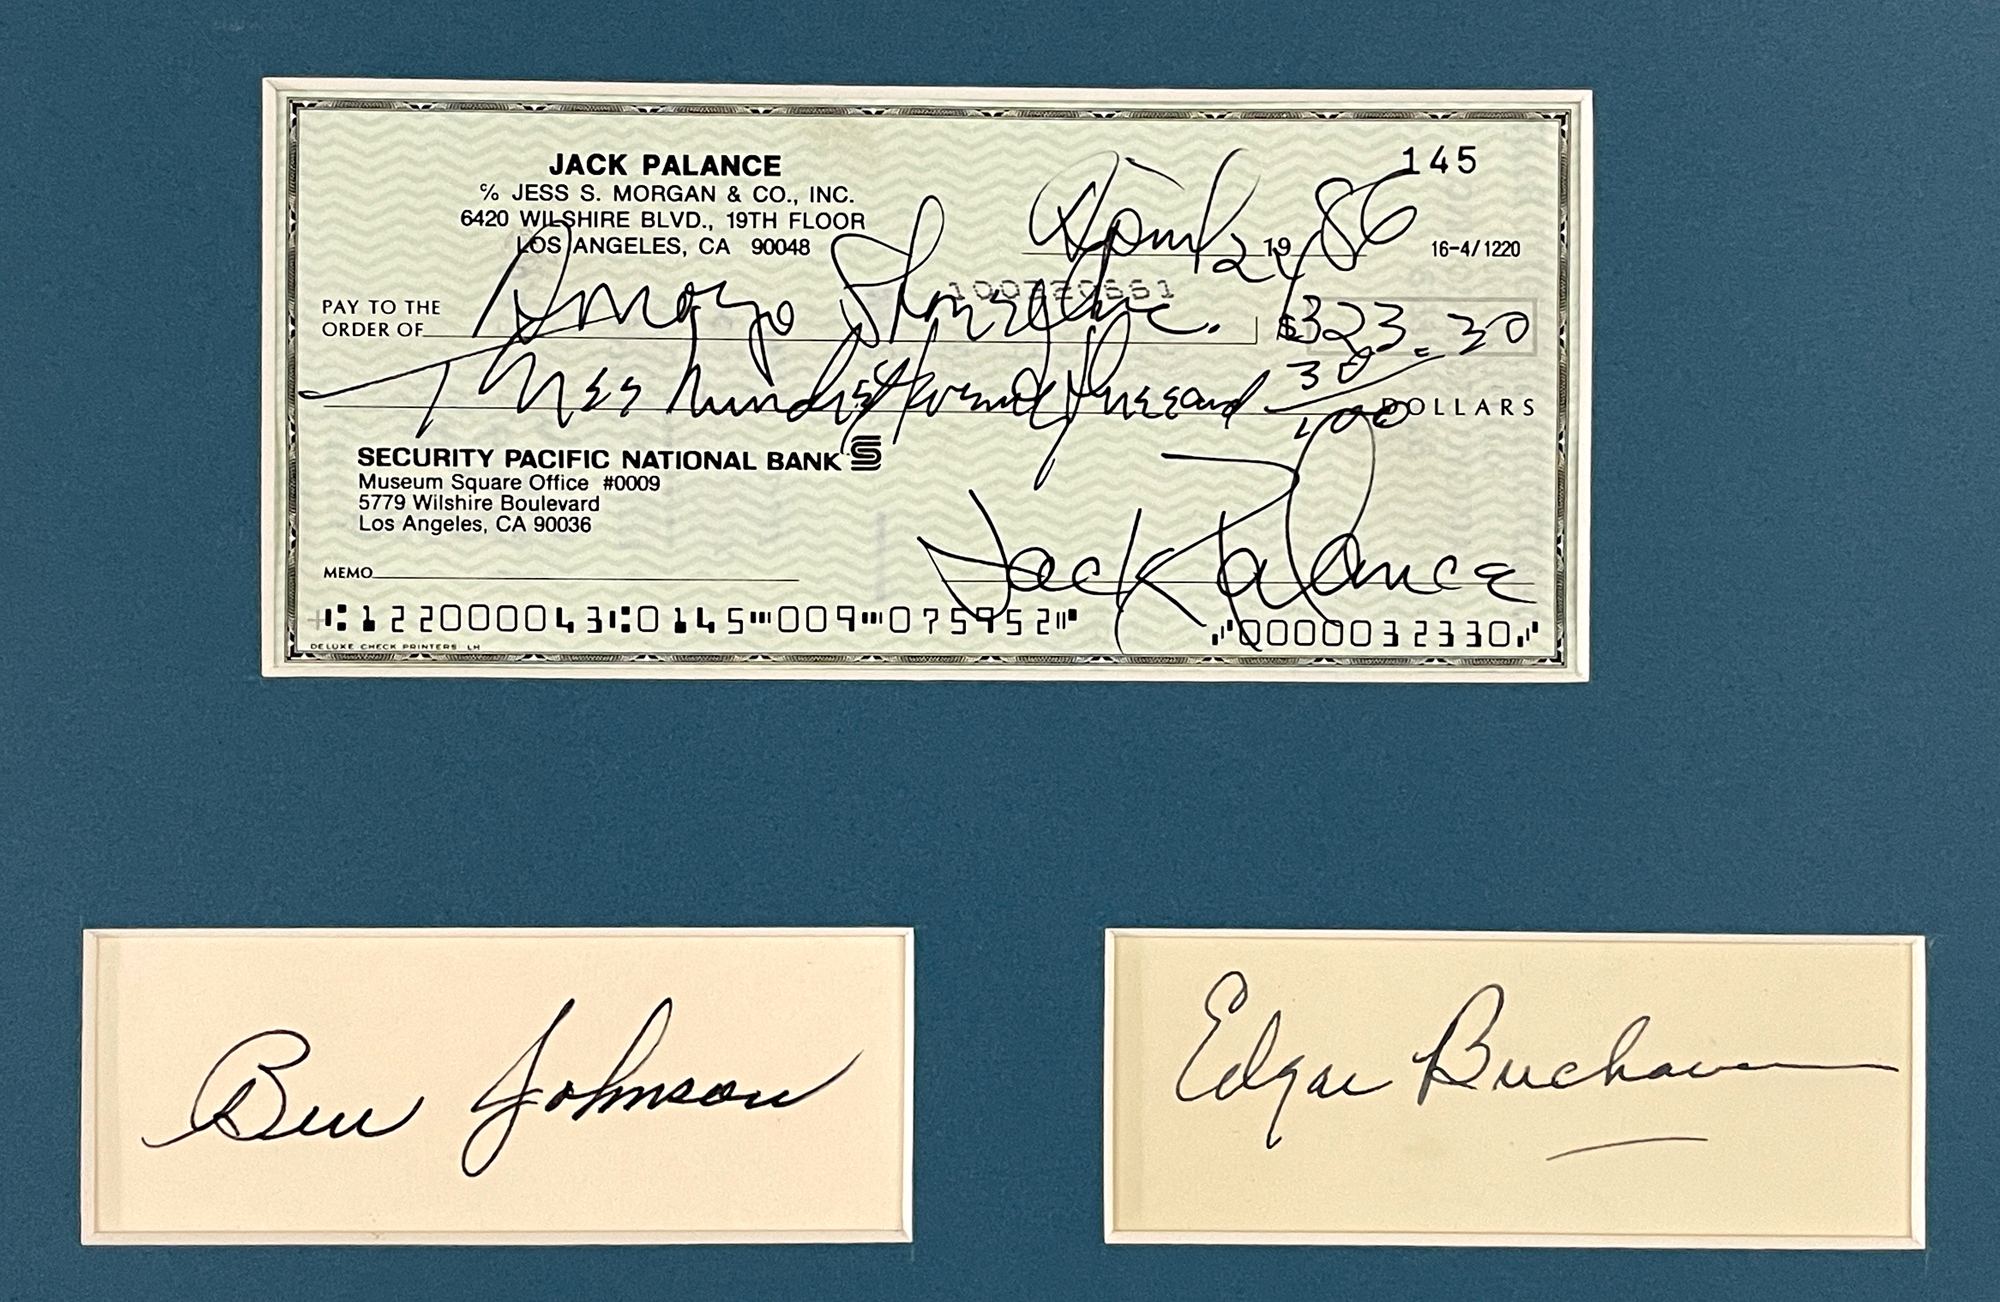 JACK PALANCE
℅ JESS S. MORGAN & CO., INC.
6420 WILSHIRE BLVD., 19TH FLOOR
LOS ANGELES, CA 90048
145
April 2, 19 86
16-4/1220
PAY TO THE
ORDER OF Inc.
$323.30
Three hundred and 30/100 DOLLARS
SECURITY PACIFIC NATIONAL BANK
Museum Square Office #0009
5779 Wilshire Boulevard
Los Angeles, CA 90036
Jack Palance
MEMO
⑆122000043⑆0145⑈009⑈075952⑈ ⑇0000032330⑇
DELUXE CHECK PRINTERS LH
Ben Johnson
Edgar Buchanan